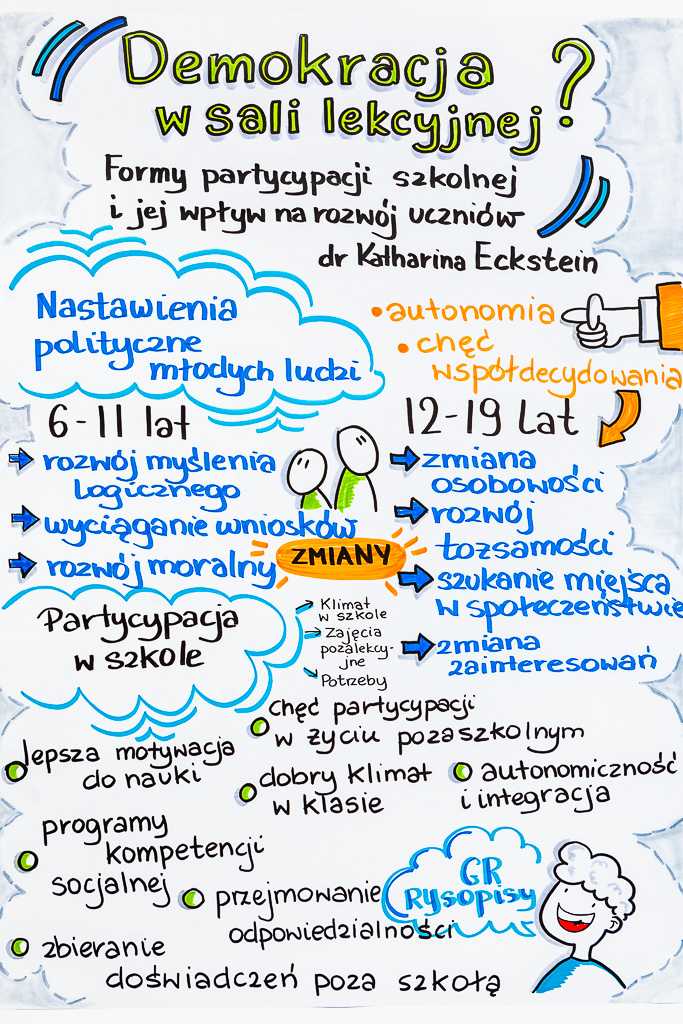 Demokracja
w sali lekcyjnej?
Formy partycypacji szkolnej
i jej wpływ na rozwój uczniów
dr Katharina Eckstein
Nastawienia
polityczne
młodych ludzi
• autonomia
• chęć
współdecydowania
6-11 lat
rozwój myślenia
logicznego
wyciąganie wniosków
rozwój moralny
ZMIANY
12-19 Lat
zmiana
osobowości
rozwój
tożsamości
szukanie miejsca
w społeczeństwie
zmiana
zainteresowań
Partycypacja
w szkole
Klimat
w szkole
Zajęcia
pozalekcy-
jne
Potrzeby
chęć partycypacji
w życiu pozaszkolnym
lepsza motywacja
do nauki
dobry klimat
w klasie
autonomiczność
i integracja
programy
kompetencji
socjalnej
przejmowanie
odpowiedzialności
zbieranie
doświadczeń poza szkołą
GR
Rysopisy